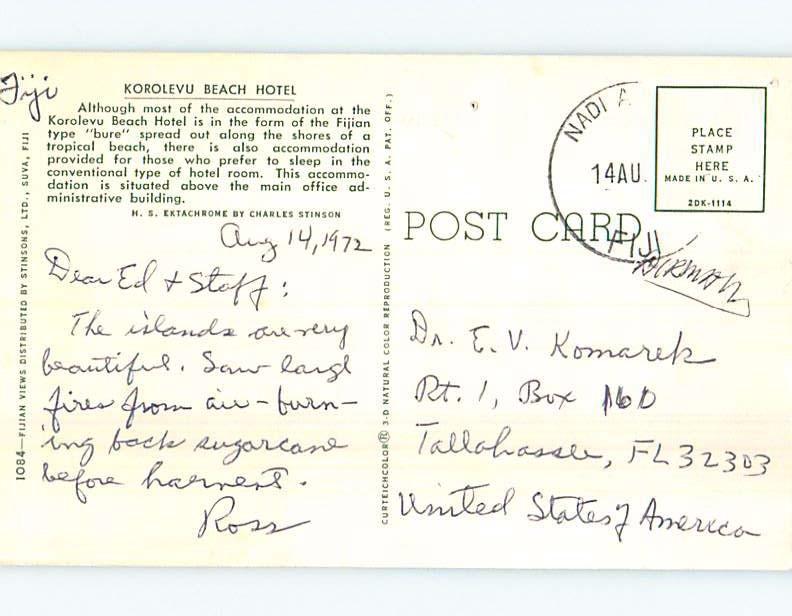 Fiji
KOROLEVU BEACH HOTEL
Although most of the accommodation at the
Korolevu Beach Hotel is in the form of the Fijian
type "bure" spread out along the shores of a
tropical beach, there is also accommodation
provided for those who prefer to sleep in the
conventional type of hotel room. This accommo-
dation is situated above the main office ad-
ministrative building.
H. S. EKTACHROME BY CHARLES STINSON
1084—FIJIAN VIEWS DISTRIBUTED BY STINSONS, LTD., SUVA, FIJI
Aug 14, 1972
Dear Ed & Staff:
The islands are very
beautiful. Saw large
fires from air - burn-
ing back sugarcane
before harvest.
Ross
CURTEICHCOLOR® 3-D NATURAL COLOR REPRODUCTION (REG. U. S. A. PAT. OFF.)
POST CARD
NADI A
14AU.
FIJI
PLACE
STAMP
HERE
MADE IN U. S. A.
2DK-1114
AIRMAIL
Dr. E. V. Komarek
Rt. 1, Box 160
Tallahassee, FL 32303
United States of America